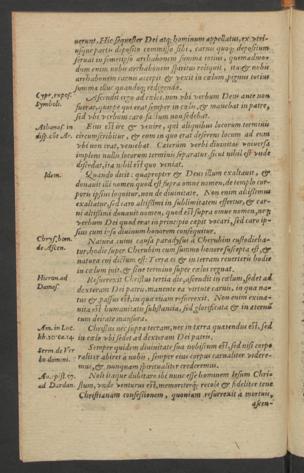 uerunt. Hic sequester Dei atq; hominum appellatus, ex vtri-
usque parti deposito commisso sibi, carnis quoq; depositum
seruat in semetipso arrhabonem summæ totius, quemadmo-
dum enim nobis arrhabonem spiritus reliquit, ita & à nobis
arrhabonem carnis accepit & vexit in cælum pignus totius
summæ illuc quandoq; redigendæ.
Cypr. expos. Symboli. Ascendit ergo ad cælos, non vbi verbum Deus ante non
fuerat, quippe qui erat semper in cælis, & manebat in patre,
sed vbi verbum caro factum non sedebat.
Athanas. in Eum est ire & venire, qui aliquibus locorum terminis
circumscribitur, & eum in quo erat deserens locum ad eum
vbi non erat, venebat. Cæterùm verbi diuinitas vniuersa
implens nullis locorum terminis separatur, sicut nihil est vnde
discedat, ita nihil est quo veniat.
Idem. Quando dicit: quapropter & Deus illum exaltauit, &
donauit illi nomen quod est supra omne nomen, de templo cor-
poris ipsius loquitur, non de diuinitate. Non enim altissimus
exaltatur, sed caro altissimi in sublimitatem effertur, & car-
ni altissimi donauit nomen, quod est supra omne nomen, neq;
verbum Dei quod erat in principio cepit vocari, sed caro ip-
sius cum ipso diuinum honorem consequitur.
Chrysostom. de Ascen. Natura cuius causa paradisus à Cherubim custodieba-
tur, hodie super Cherubim cum summo honore suscepta est, &
natura cui dictum est: Terra es & in terram reuerteris hodie
in cælum iuit, & sine termino super cælos regnat.
Hieron. ad Damas. Resurrexit Christus tertia die, ascendit in cælum, sedet ad
dexteram Dei patris, manente ea virtute carnis, in qua na-
tus & passus est, in qua etiam resurrexit. Non enim exina-
nita est humanitatis substantia, sed glorificata & in æternū
cum deitate mansura.
Am. in Luc. Christus nec supra tectam, nec in terra quærendus est, sed
in cælo vbi sedet ad dexteram Dei patris.
Serm. de Ver- bo domini. Semper quidem diuinitate sua nobiscum est, sed nisi corpo-
raliter abiret à nobis, semper eius corpus carnaliter videre-
mus, & nunquam spiritualiter crederemus.
Au. epist. 57. ad Dardan. Noli itaque dubitare ibi nunc esse hominem Iesum Chri-
stum, vnde venturus est, memoriterq; recole & fideliter tene
Christianam confessionem, quoniam resurrexit à mortuis,
ascen-